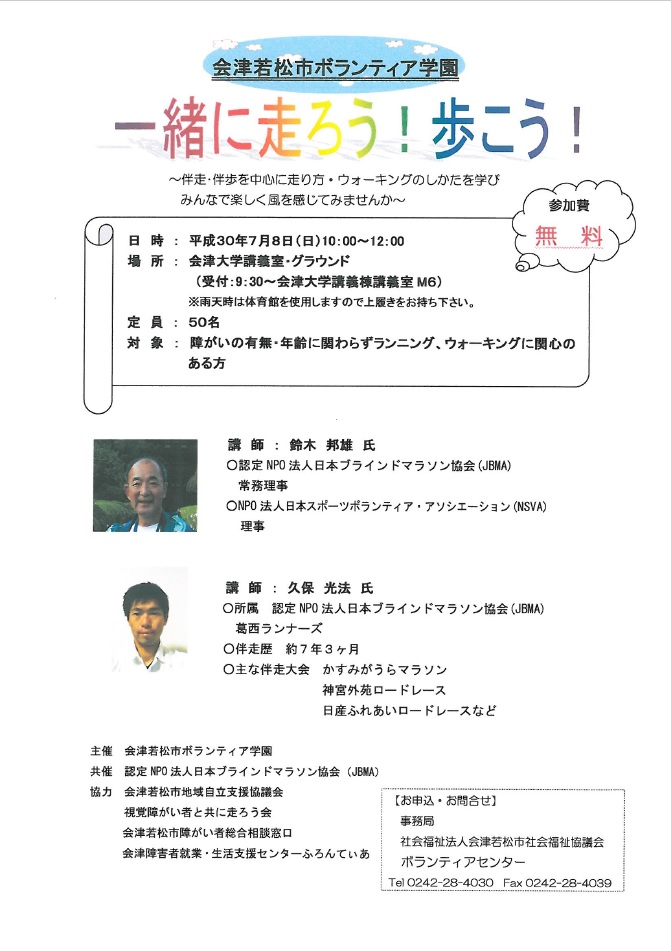 会津若松市ボランティア学園
一緒に走ろう！歩こう！
～伴走・伴歩を中心に走り方・ウォーキングのしかたを学び
みんなで楽しく風を感じてみませんか～
参加費
無 料
日 時 ： 平成30年7月8日（日）10：00～12：00
場 所 ： 会津大学講義室・グラウンド
（受付：9：30～会津大学講義棟講義室M6）
※雨天時は体育館を使用しますので上履きをお持ち下さい。
定 員 ： 50名
対 象 ： 障がいの有無・年齢に関わらずランニング、ウォーキングに関心の
ある方
講 師 ： 鈴木 邦雄 氏
○認定NPO法人日本ブラインドマラソン協会（JBMA）
常務理事
○NPO法人日本スポーツボランティア・アソシエーション（NSVA）
理事
講 師 ： 久保 光法 氏
○所属 認定NPO法人日本ブラインドマラソン協会（JBMA）
葛西ランナーズ
○伴走歴 約７年３ヶ月
○主な伴走大会 かすみがうらマラソン
神宮外苑ロードレース
日産ふれあいロードレースなど
主催 会津若松市ボランティア学園
共催 認定NPO法人日本ブラインドマラソン協会（JBMA）
協力 会津若松市地域自立支援協議会
視覚障がい者と共に走ろう会
会津若松市障がい者総合相談窓口
会津障害者就業・生活支援センターふろんてぃあ
【お申込・お問合せ】
事務局
社会福祉法人会津若松市社会福祉協議会
ボランティアセンター
Tel 0242-28-4030 Fax 0242-28-4039